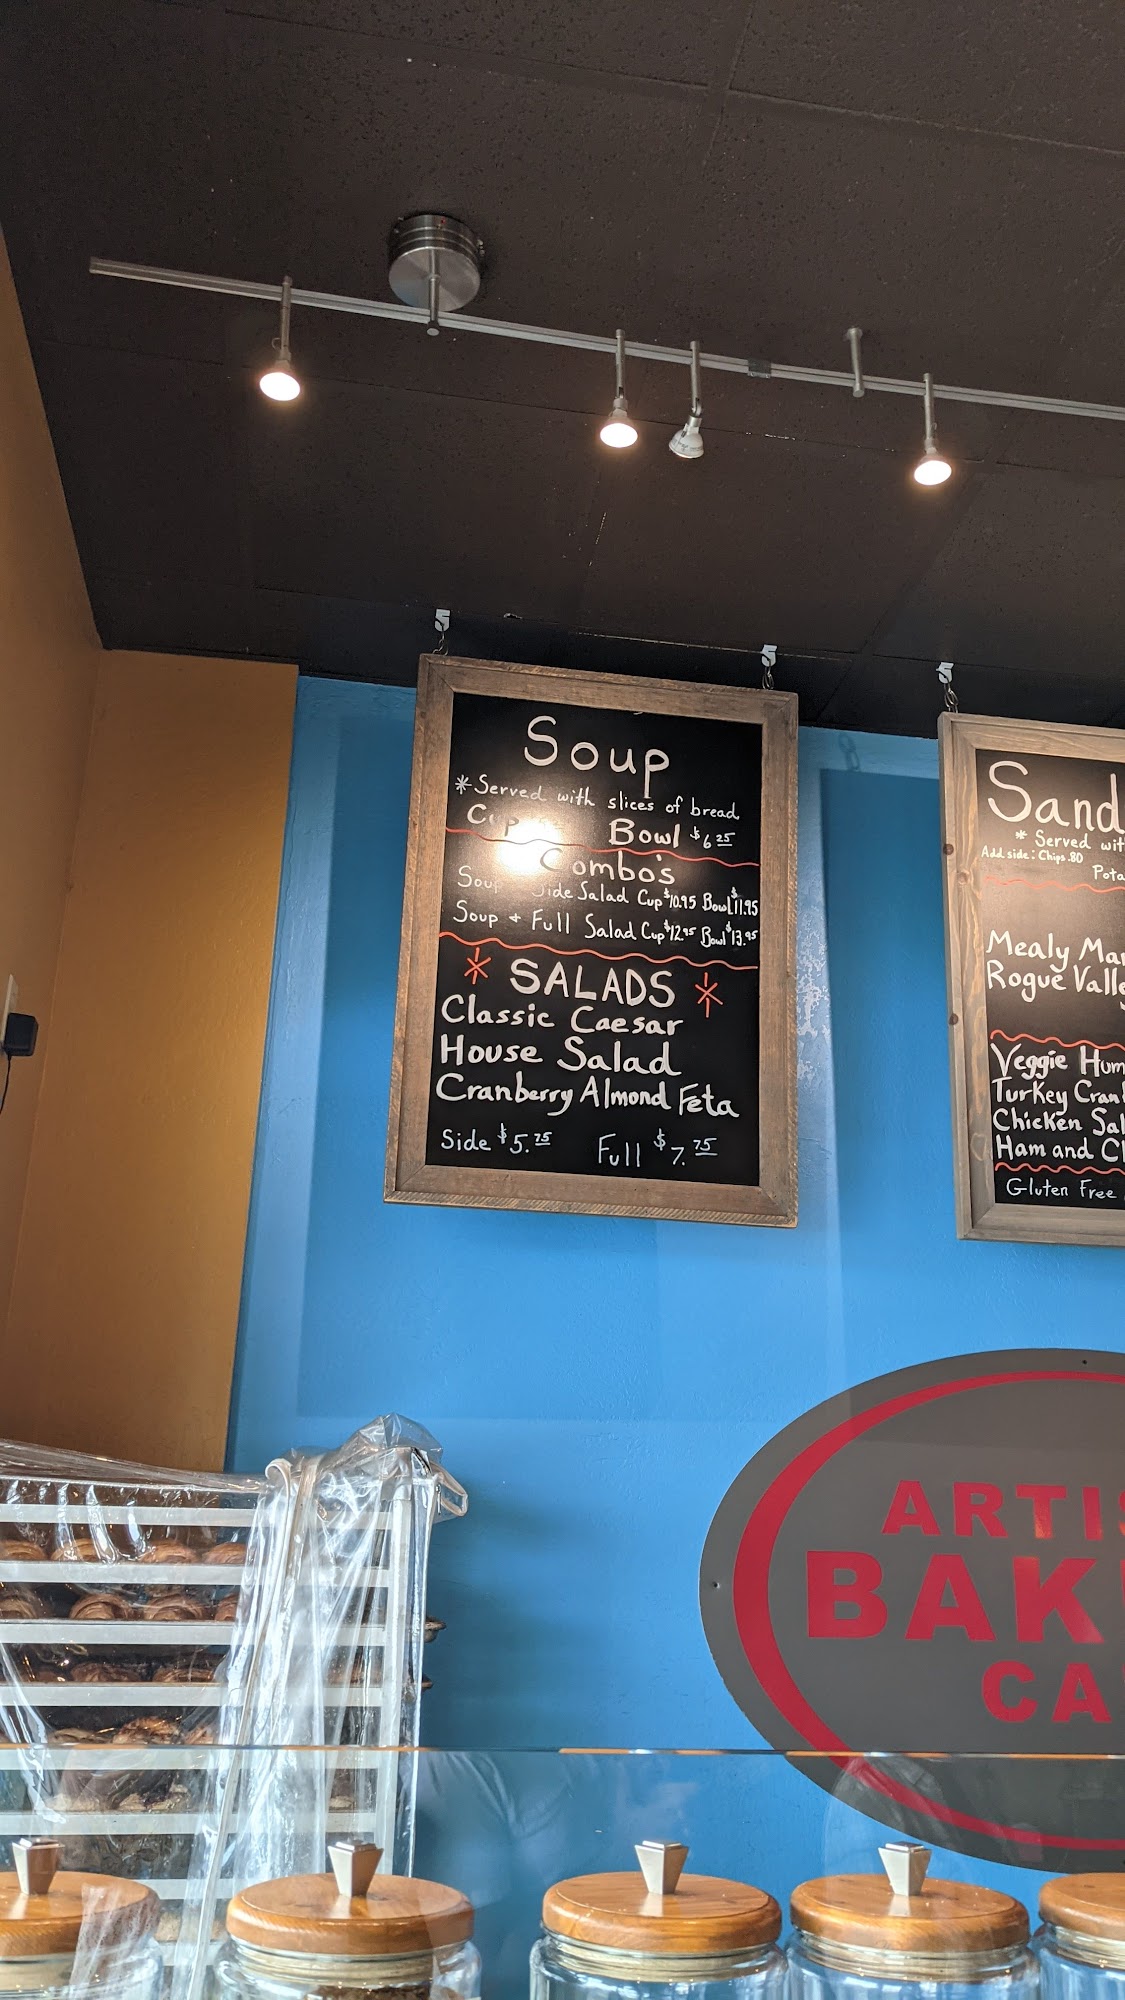 Soup
*Served with slices of bread
Cup Bowl $6.25
Combo's
Soup Side Salad Cup $10.95 Bowl $11.95
Soup + Full Salad Cup $12.95 Bowl $13.95
* SALADS *
Classic Caesar
House Salad
Cranberry Almond Feta
Side $5.75 Full $7.75
Sand
* Served wit
Add side: Chips .80
Pota
Mealy Mar
Rogue Valle
Veggie Hum
Turkey Cran
Chicken Sal
Ham and Ch
Gluten Free
ARTIS
BAK
CA